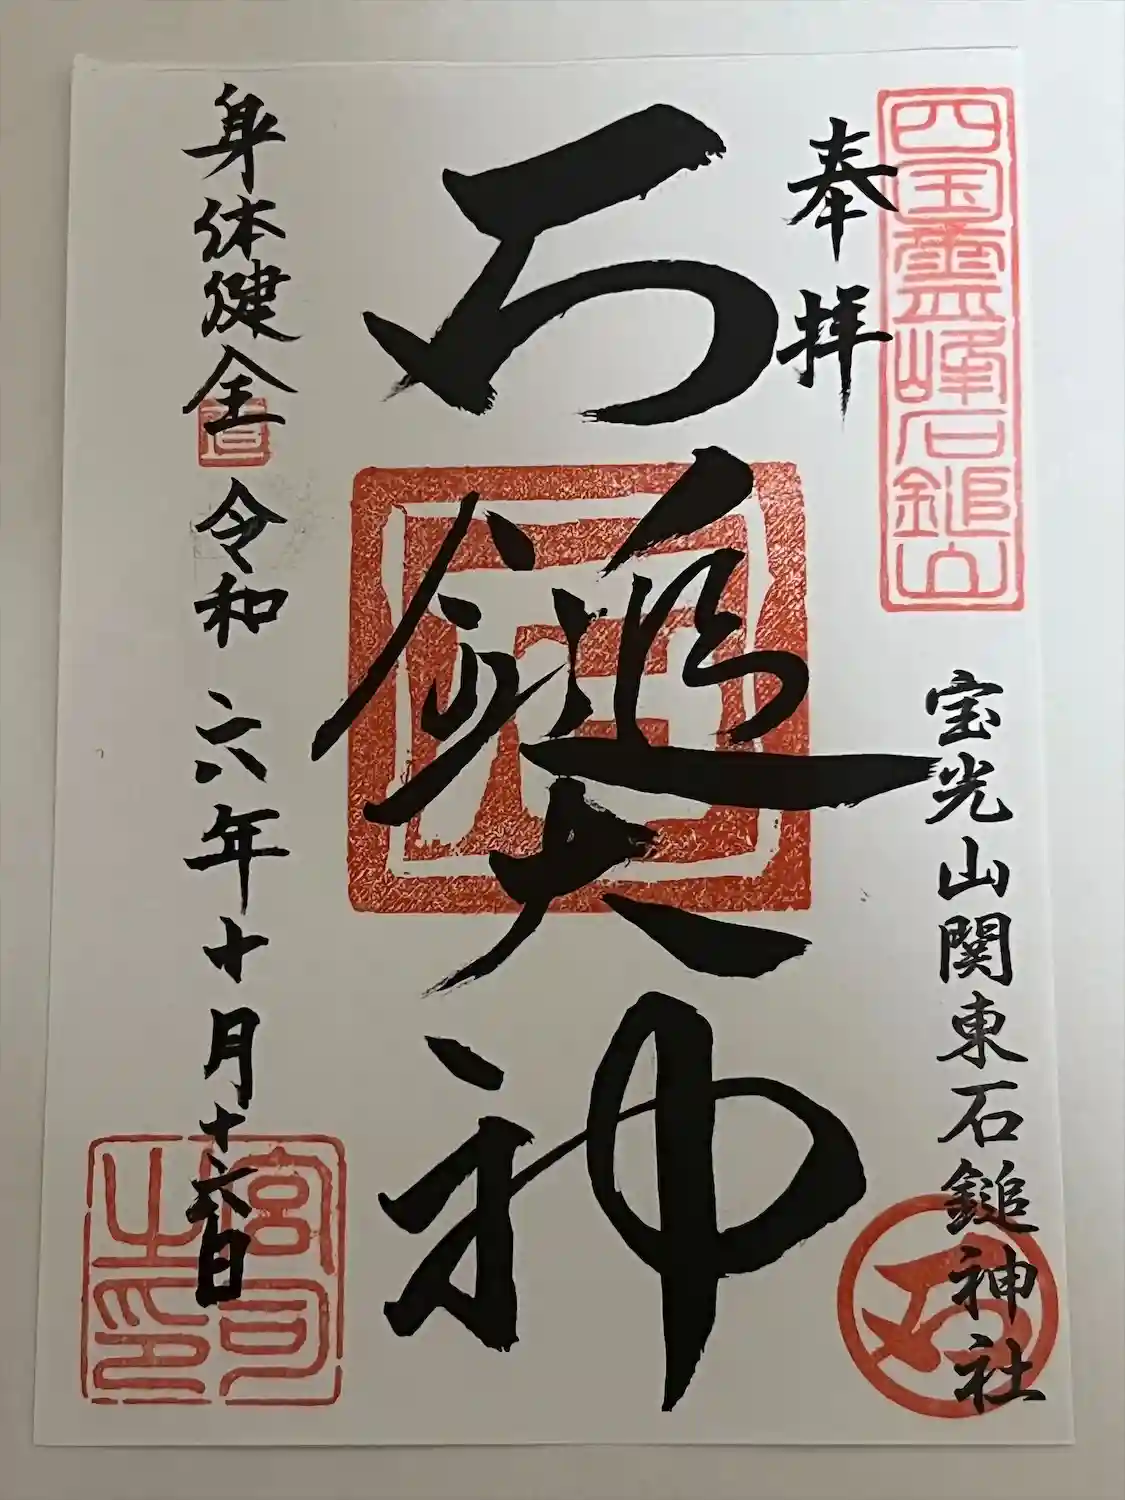 四国霊峰石鎚山
奉拝
宝光山関東石鎚神社
石鎚大神
身体健全
令和六年十月十六日
宮司
之印